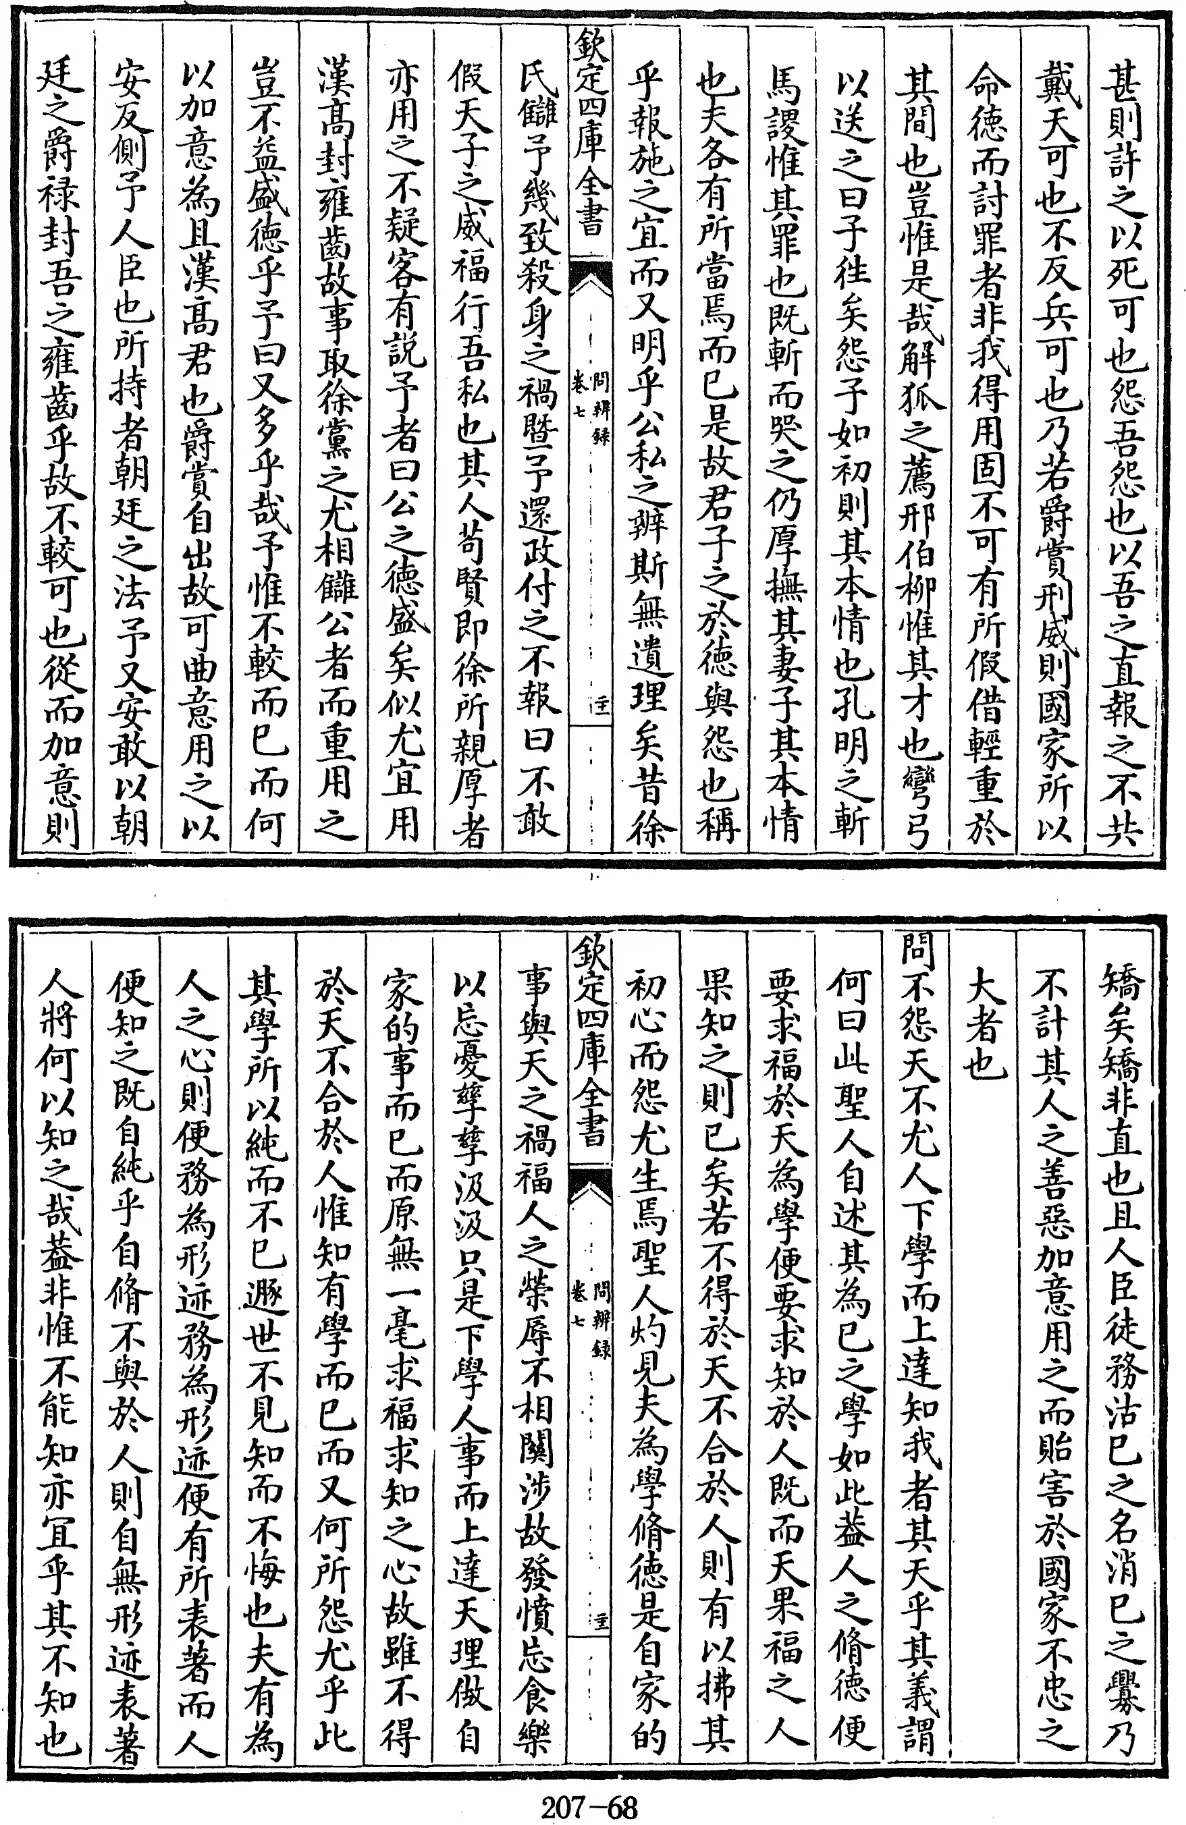 甚則許之以死可也怨吾怨也以吾之直報之不共
戴天可也不反兵可也乃若爵賞刑威則國家所以
命德而討罪者非我得用固不可有所假借輕重於
其間也豈惟是哉解狐之薦邢伯柳惟其才也彎弓
以送之曰子徃矣怨子如初則其本情也孔明之斬
馬謖惟其罪也既斬而哭之仍厚撫其妻子其本情
也夫各有所當焉而已是故君子之於德與怨也稱
乎報施之宜而又明乎公私之辨斯無遺理矣昔徐
欽定四庫全書
問辨錄
卷七
氏讎予幾致殺身之禍暨予還政付之不報曰不敢
假天子之威福行吾私也其人苟賢即徐所親厚者
亦用之不疑客有説予者曰公之德盛矣似尤宜用
漢髙封雍齒故事取徐黨之尤相讎公者而重用之
豈不益盛德乎予曰又多乎哉予惟不較而已而何
以加意為且漢髙君也爵賞自出故可曲意用之以
安反側予人臣也所持者朝廷之法予又安敢以朝
廷之爵禄封吾之雍齒乎故不較可也從而加意則
矯矣矯非直也且人臣徒務沽已之名消已之釁乃
不計其人之善惡加意用之而貽害於國家不忠之
大者也
問不怨天不尤人下學而上達知我者其天乎其義謂
何曰此聖人自述其為已之學如此葢人之脩德便
要求福於天為學便要求知於人既而天果福之人
果知之則已矣若不得於天不合於人則有以拂其
初心而怨尤生焉聖人灼見夫為學脩德是自家的
欽定四庫全書
問辨錄
卷七
事與天之禍福人之榮辱不相關涉故發憤忘食樂
以忘憂孳孳汲汲只是下學人事而上達天理做自
家的事而已而原無一毫求福求知之心故雖不得
於天不合於人惟知有學而已而又何所怨尤乎此
其學所以純而不已遯世不見知而不悔也夫有為
人之心則便務為形迹務為形迹便有所表著而人
便知之既自純乎自脩不與於人則自無形迹表著
人將何以知之哉葢非惟不能知亦冝乎其不知也
207-68